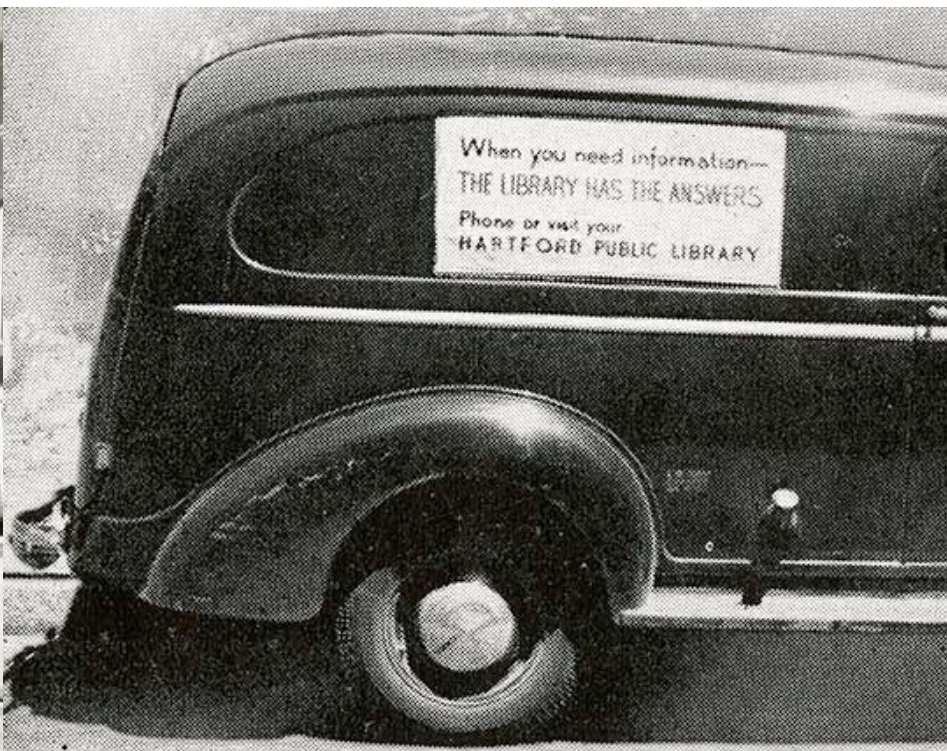 When you need information—
THE LIBRARY HAS THE ANSWERS
Phone or visit your
HARTFORD PUBLIC LIBRARY